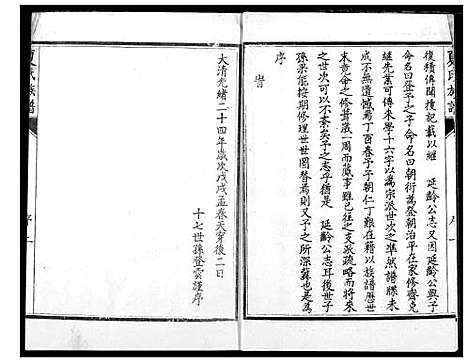 夏氏族譜
序一
復積傳聞搜記載以繼 延齡公志又因延齡公與子
命名曰登予之子命名曰朝衍為登朝治平在家修齊克
繼先業可傳來學十六字以為宗派世次之準然譜牒未
成不無遺憾焉丁酉春予子朝仁丁艱在籍以族譜歷世
未竟命之修葺歲一周而蕆事雖已往之支派疏略而將來
之世次可以不紊矣予之志乎猶是 延齡公志耳後世子
孫果能按期修理世世罔有替焉則又予之所深蘇也是為
序 旹
大清光緒二十四年歲次戊戌孟春天穿後二日
十七世孫登雲謹序
夏氏族譜
序二